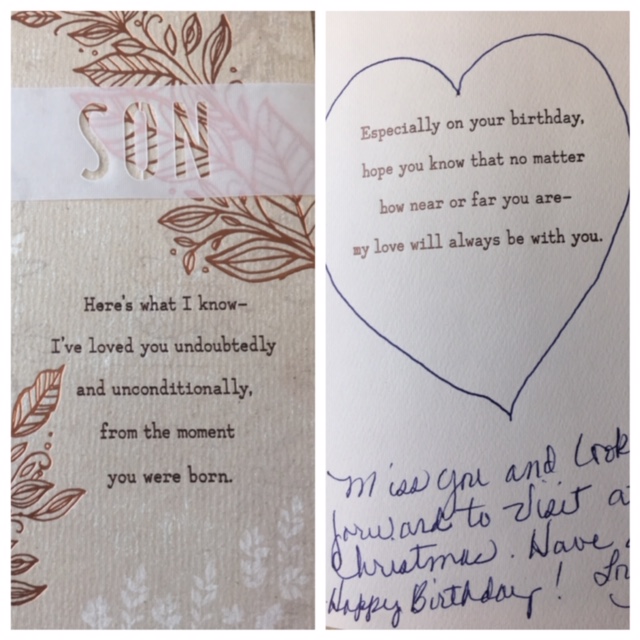 SON
Here's what I know–
I've loved you undoubtedly
and unconditionally,
from the moment
you were born.
Especially on your birthday,
hope you know that no matter
how near or far you are–
my love will always be with you.
Miss you and look
forward to visit
Christmas. Have
Happy Birthday!